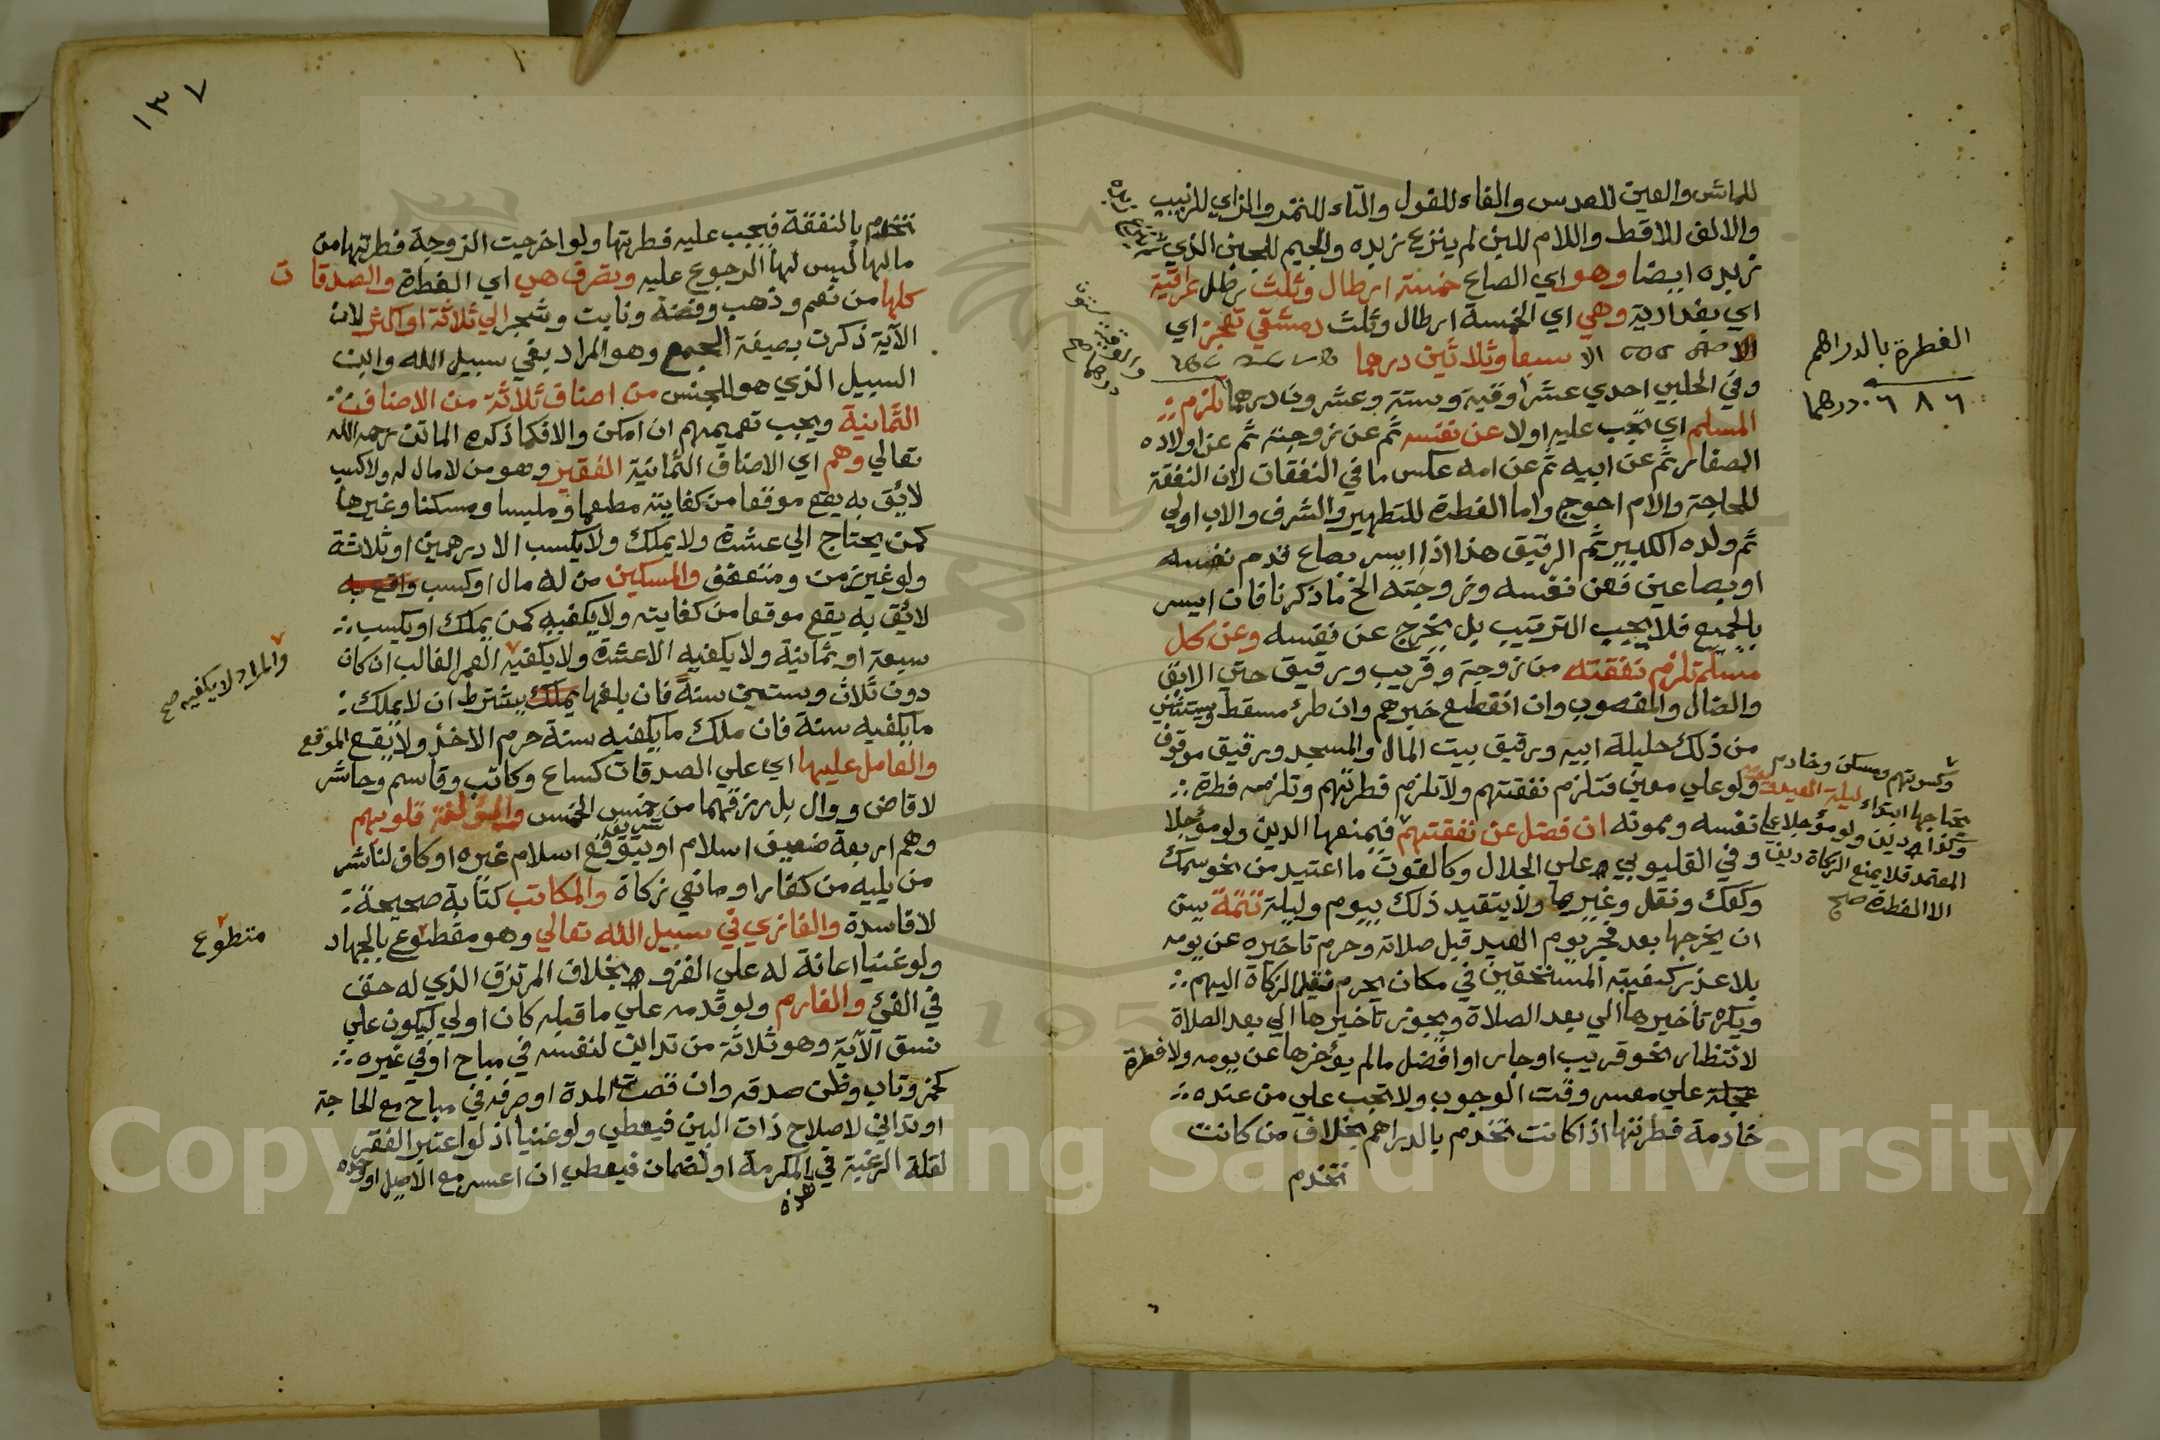 للماش والعين للعدس والفاء للفول والتاء للتمر والزاي للزبيب
والالف للاقط واللام للبن لم ينزع زبده والجيم للجبن الذي
زبده ايضا وهو اي الصاع خمسة ارطال وثلث رطل عراقية
اي بغدادية وهي اي الخمسة ارطال وثلث دمشقي تحبز اي
الا سبعا وثلاثين درهما
وفي الحلبي احدي عشر اوقية وستة وعشرون درهما تلزم
المسلم اي تجب عليه اولا عن نفسه ثم عن زوجته ثم عن اولاده
الصغار ثم عن ابيه ثم عن امه عكس ما في النفقات لان النفقة
للحاجة والام احوج واما الفطرة للتطهير والشرف والاب اولي
ثم ولده الكبير ثم الرقيق هذا اذا ايسر بصاع قدم نفسه
او بصاعين فعن نفسه وزوجته الخ ما ذكرنا فان ايسر
بالجميع فلا يجب الترتيب بل يخرج عن نفسه وعن كل
مسلم تلزم نفقته من زوجة وقريب ورقيق حتي الابق
والضال والمغصوب وان انقطع خبرهم وان طرء مسقط ويستثني
من ذلك حليلة ابيه ورقيق بيت المال والمسجد ورقيق موقوف
ولو علي معين فتلزم نفقتهم ولا تلزم فطرتهم وتلزمه فطرة
نفسه وممونه ان فضل عن نفقتهم فيمنعها الدين ولو مؤجلا
وفي القليوبي علي الحلال وكالقوت ما اعتيد من نحو سمك
وكعك ونقل وغيرها ولا يتقيد ذلك بيوم وليلة تتمة يسن
ان يخرجها بعد فجر يوم العيد قبل صلاته وحرم تاخيره عن يومه
بلا عذر كغيبة المستحقين في مكان يحرم نقل الزكاة اليهم
ويكره تأخيرها الي بعد الصلاة ويجوز تأخيرها الي بعد الصلاة
لانتظار نحو قريب او جار او افضل ما لم يؤخرها عن يومه ولا فطرة
علي معسر وقت الوجوب ولا تجب علي من عنده
خادمة فطرتها اذا كانت تخدم بالدراهم بخلاف من كانت
تخدم
الفطرة بالدراهم
٦٨٦ درهما
وكسوتهم ومسكن وخادم
يحتاجها ابتداء ليلة العيد
وكذا دين ولو مؤجلا علي
المعتمد فلا يمنع الزكاة دين
الا الفطرة صح
١٣٧
تخدم بالنفقة فيجب عليه فطرتها ولو اخرجت الزوجة فطرتها من
مالها ليس لها الرجوع عليه ويصرف هي اي الفطرة والصدقات
كلها من نعم وذهب وفضة ونابت وشجر الي ثلاثة او اكثر لان
الآية ذكرت بصيغة الجمع وهو المراد بفي سبيل الله وابن
السبيل الذي هو للجنس من اصناف ثلاثة من الاصناف
الثمانية ويجب تعميمهم ان امكن والا فكما ذكره الماتن رحمه الله
تعالي وهم اي الاصناف الثمانية الفقير وهو من لا مال له ولا كسب
لائق به يقع موقعا من كفايته مطعما وملبسا ومسكنا وغيرها
كمن يحتاج الي عشرة ولا يملك ولا يكسب الا درهمين او ثلاثة
ولو غير زمن ومتعفف والمسكين من له مال او كسب واقع به
لائق به يقع موقعا من كفايته ولا يكفيه كمن يملك او يكسب
سبعة او ثمانية ولا يكفيه الا عشرة ولا يكفيه العمر الغالب ان كان
دون ثلاث وستين سنة فان بلغها يملك يشترط ان لا يملك
ما يكفيه سنة فان ملك ما يكفيه سنة حرم الاخذ ولا يقع الموقع
والعامل عليها اي علي الصدقات كساع وكاتب وقاسم وحاشر
لا قاض ووال بل رزقهما من خمس الخمس والمؤلفة قلوبهم
وهم اربعة ضعيف اسلام او شريف يتوقع اسلام غيره او كاف لنا شر
من يليه من كفار او مانعي زكاة والمكاتب كتابة صحيحة
لا فاسدة والغازي في سبيل الله تعالي وهو متطوع بالجهاد
ولو غنيا اعانة له علي الغزو بخلاف المرتزق الذي له حق
في الفئ والغارم ولو قدمه علي ما قبله كان اولي ليكون علي
نسق الآية وهو ثلاثة من تداين لنفسه في مباح او في غيره
كخمر وتاب وظن صدقه وان قصرت المدة او صرفه في مباح مع الحاجة
او تداني لاصلاح ذات البين فيعطي ولو غنيا اذ لو اعتبر الفقر
لقلة الرغبة في المكرمة او لضمان فيعطي ان اعسر مع الاصيل او وحده
هذه
والمراد لا يكفيه صح
متطوع
Copyright © King Saud University